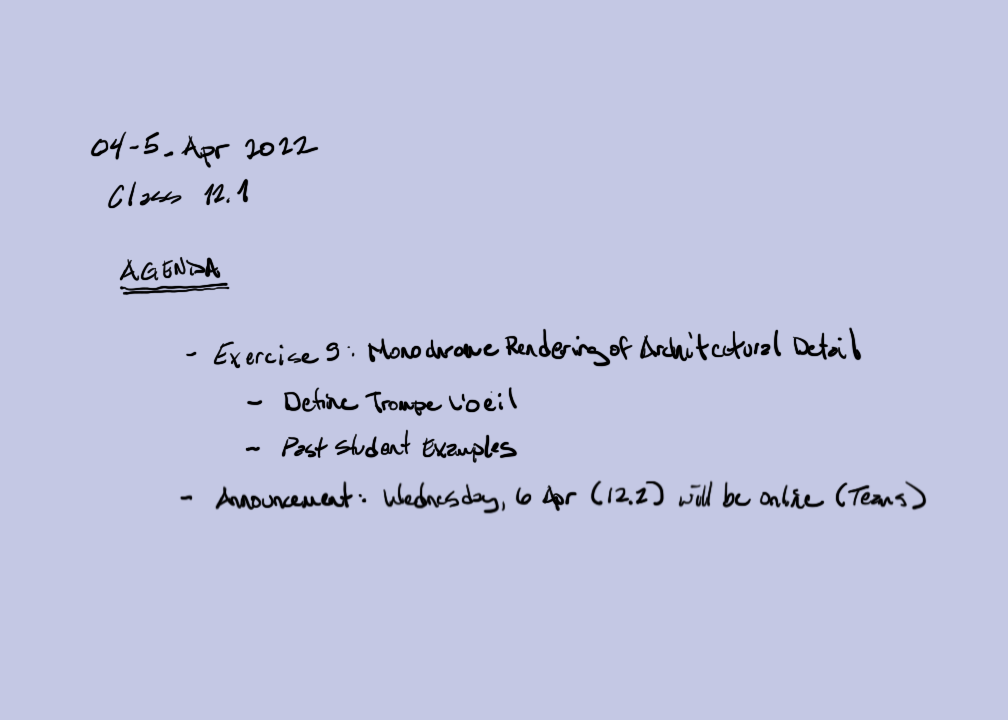 04-5_Apr 2022
Class 12.1
AGENDA
- Exercise 9: Monochrome Rendering of Architectural Detail
- Define Trompe L'oeil
- Past Student Examples
- Announcement: Wednesday, 6 Apr (12.2) will be online (Teams)